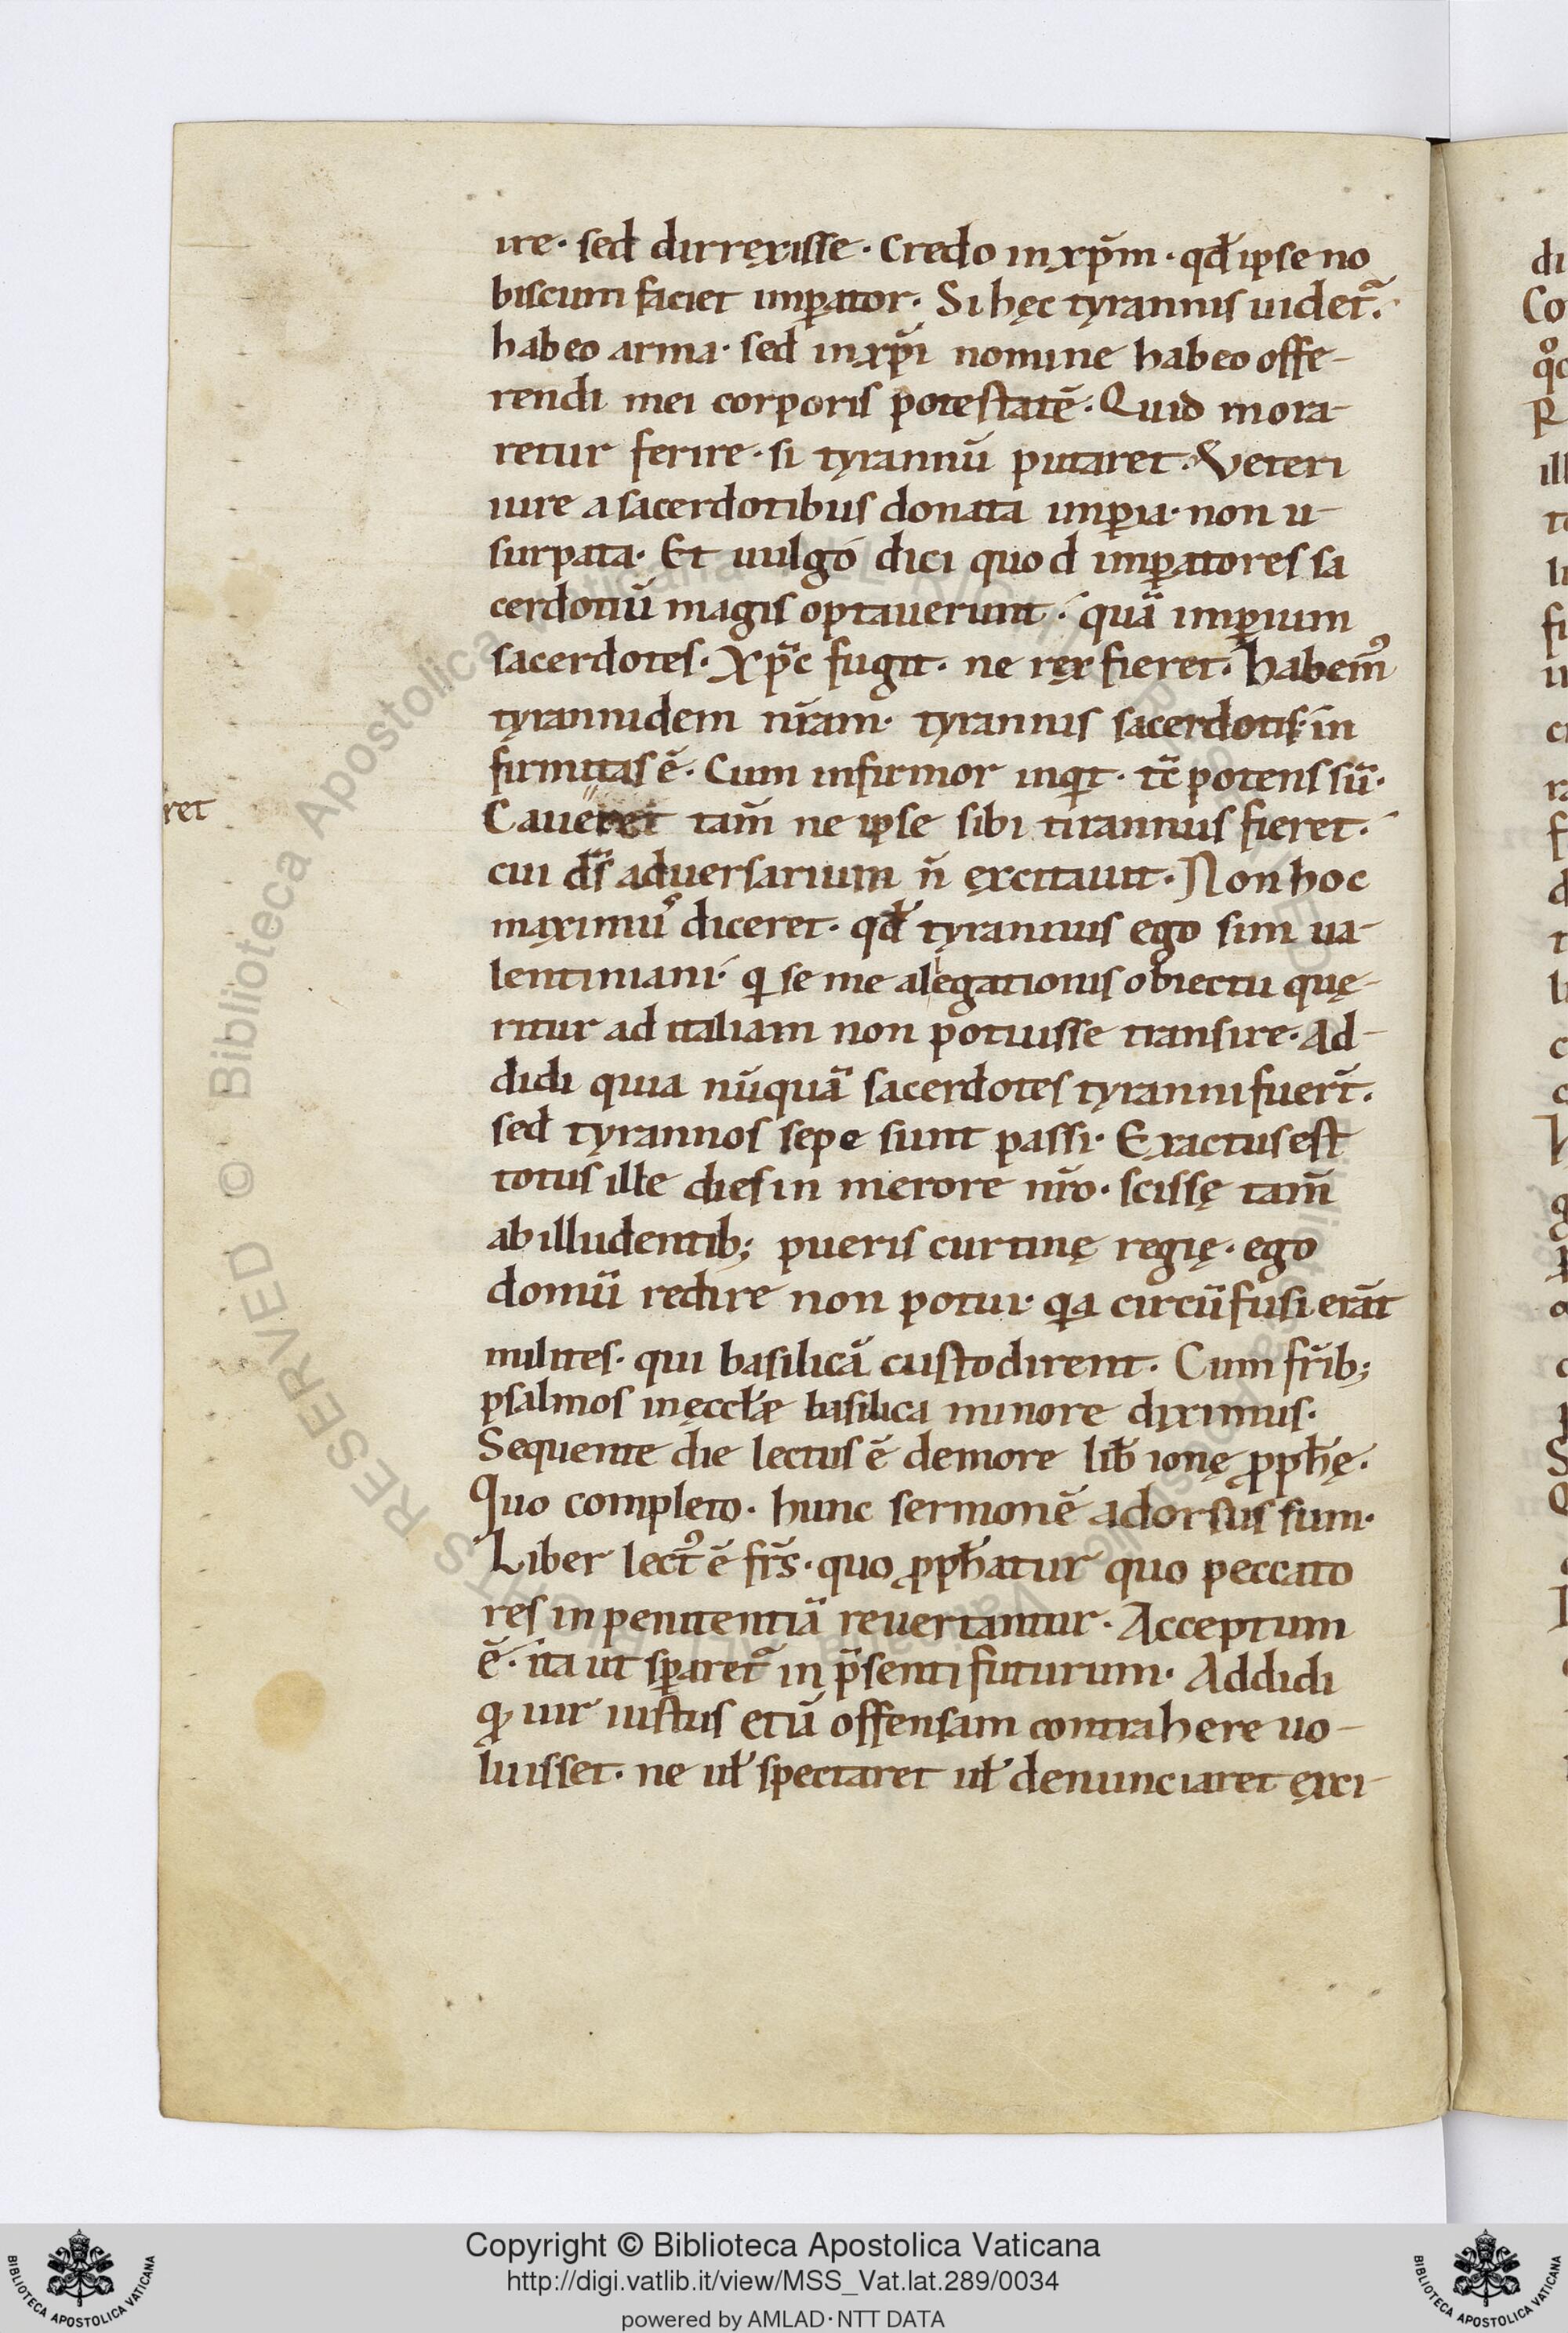 ire· sed dirręxisse· Credo inxp̄m· qđ ipse no
biscum faciet imꝑator· Si hęc tyrannis uidet᷑·
habeo arma· sed inxp̄i nomine habeo offe-
rendi mei corporis potestatē· Quid mora-
retur ferire· si tyrannū putaret· Veteri
iure a sacerdotibus donata imꝑia· non u-
surpata· Et uulgo dici quod imꝑatores sa
cerdotiū magis optauerunt· quā imꝑium
sacerdotes· Xp̄c fugit· ne ręx fieret· habemꝰ
tyrannidem nr̄am· tyrannis sacerdotis· in
firmitas ē· Cum infirmor inqt· tc̄ potens sū·
Caueret tam̄ ne ipse sibi tirannus fieret·
cui ds̄ aduersarium n̄ ęxcitauit· Non hoc
maximū diceret· qđ tyrannus ego sim ua-
lentiniani· q se me alegationis obiectu quę-
ritur ad italiam non potuisse transire· Ad-
didi quia nūquā sacerdotes tyranni fuer̄t·
sed tyrannos sepe sunt passi· Exactus est
totus ille dies in merore nr̄o· scissę tam̄
ab illudentib; pueris curtinę regię· ego
domū redire non potui· qa circūfusi erāt
milites· qui basilicā custodirent· Cum fr̄ib;
psalmos inęccłæ basilica minore diximus·
Sequente die lectus ē demore lib̄ ionę ꝓph̄ę·
Quo completo· hunc sermonē adorsus sum·
Liber lect ꝰ ē fr̄s· quo ꝓph̄atur quo peccato
res in penitentiā reuertantur· Acceptum
ē· ita ut sꝑaret᷑ in p̄senti futurum· Addidi
qꝫ uir iustus etū offensam contrahere uo-
luisset· ne uł spectaret uł denunciaret ęxci-
ret
Copyright © Biblioteca Apostolica Vaticana
http://digi.vatlib.it/view/MSS_Vat.lat.289/0034
powered by AMLAD·NTT DATA
BIBLIOTECA APOSTOLICA VATICANA
BIBLIOTECA APOSTOLICA VATICANA